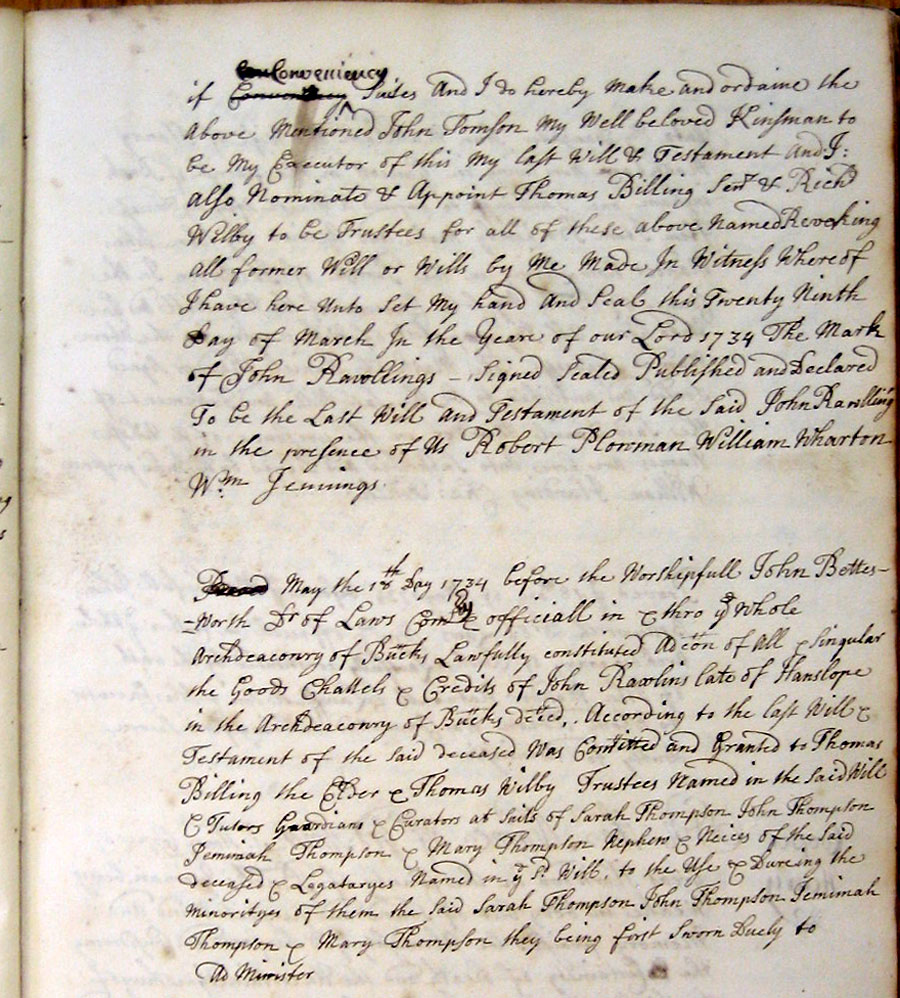 Conveniency
if Conveniency Suites And I do hereby Make and ordaine the
above Mentioned John Tomson My Well beloved Kinsman to
be My Executor of this My last Will & Testament And I:
also Nominate & Appoint Thomas Billing Senr & Richd
Wilby to be Trustees for all of these above Named Revoking
all former Will or Wills by Me Made In Witness Whereof
I have here unto Set My hand And Seal this Twenty Ninth
Day of March In the Yeare of our Lord 1734 The Mark
of John Rawllings – Signed Sealed Published and Declared
To be the Last Will and Testament of the Said John Rawlling
in the presence of Us Robert Plowman William Wharton
Wm Jennings
May the 18th Day 1734 before the Worshipfull John Bettes-
-worth Dr of Laws Comry & officiall in & thro ye Whole
Archdeaconry of Bucks Lawfully constituted Adcon of All & Singular
the Goods Chattels & Credits of John Rawlins late of Hanslope
in the Archdeaconry of Bucks deced, According to the last Will &
Testament of the Said deceased Was Comitted and Granted to Thomas
Billing the Elder & Thomas Wilby Trustees Named in the Said Will
& Tutors Guardians & Curators at Suits of Sarah Thompson John Thompson
Jemimah Thompson & Mary Thompson Nephew & Neices of the Said
deceased & Legataryes Named in ye Sd Will, to the Use & Dureing the
Minorityes of them the Said Sarah Thompson John Thompson Jemimah
Thompson & Mary Thompson they being first Sworn Duely to
Ad Minister